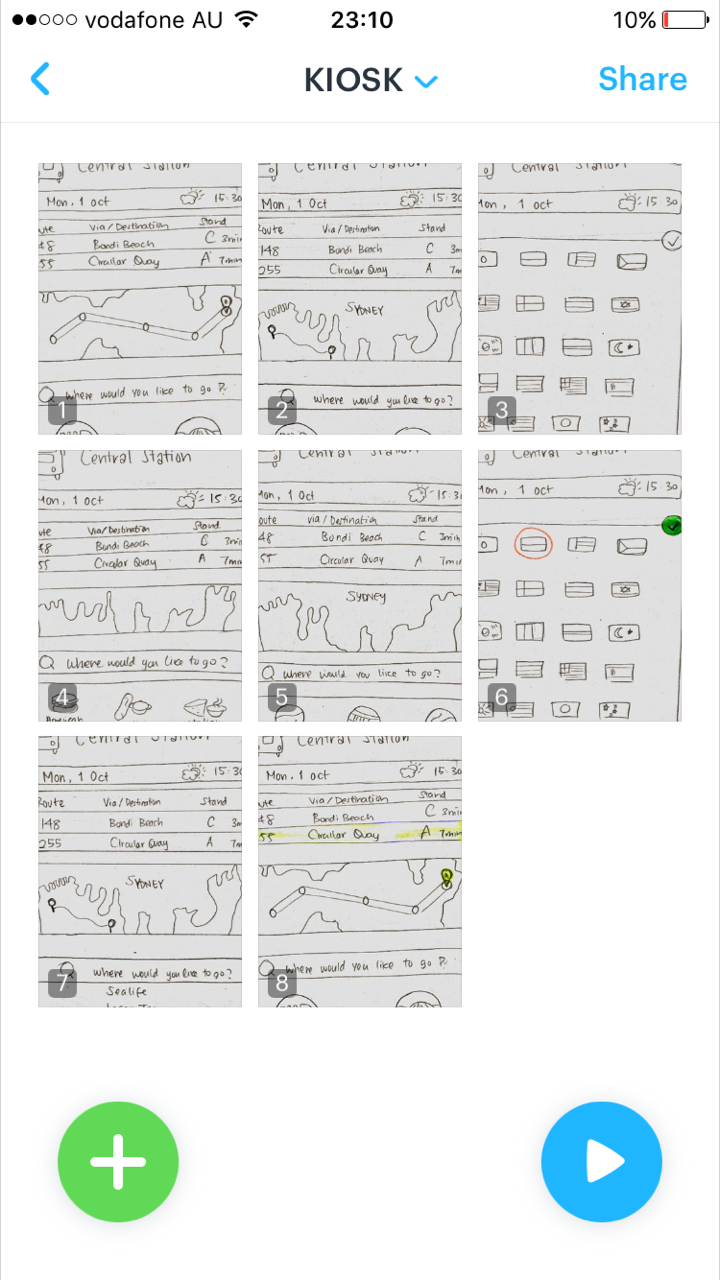 vodafone AU 23:10 10%
KIOSK Share
Central Station
Mon, 1 Oct 15:30
ute Via/Destination Stand
48 Bondi Beach C 3min
55 Circular Quay A 7min
Where would you like to go?
1
Central Station
Mon, 1 Oct 15:30
oute Via/Destination Stand
148 Bondi Beach C 3m
255 Circular Quay A 7m
SYDNEY
Where would you like to go?
2
Central Station
Mon, 1 Oct 15 30
3
Central Station
Mon, 1 Oct 15:30
ute Via/Destination Stand
48 Bondi Beach C 3min
55 Circular Quay A 7min
Where would you like to go?
4
Central Station
Mon, 1 Oct 15:3
oute Via/Destination Stand
48 Bondi Beach C 3min
55 Circular Quay A 7min
SYDNEY
Where would you like to go?
5
Central Station
Mon, 1 Oct 15 30
6
Central Station
Mon, 1 Oct 15:30
Route Via/Destination Stand
148 Bondi Beach C 3m
255 Circular Quay A 7m
SYDNEY
Where would you like to go?
7
Sealife
Central Station
Mon, 1 Oct 15:30
ute Via/Destination Stand
48 Bondi Beach C 3min
55 Circular Quay A 7min
Where would you like to go?
8